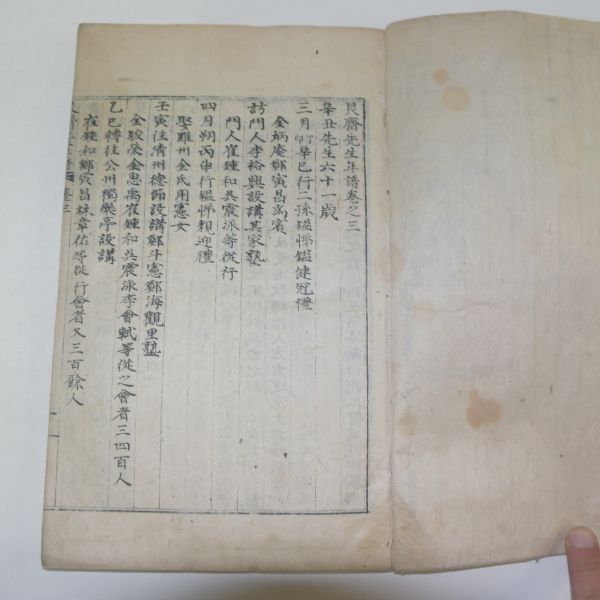 艮齋先生年譜卷之三
辛丑先生六十一歲
三月 辛巳行二孫鎰悌鎰健冠禮
金炳庵鄭寅昌爲賓
訪門人李裕興設講其家塾
門人崔鍾和吳震泳等從行
四月朔丙申行鎰悌親迎禮
娶羅州金氏用憲女
壬寅往清州德節設講鄭斗憲鄭海觀里塾
金駿榮金思禹崔鍾和吳震泳李會軾等從之會者三四百人
乙巳轉往公州獨樂亭設講
崔鍾和鄭寅昌林章佑等從行會者又三百餘人
卷三